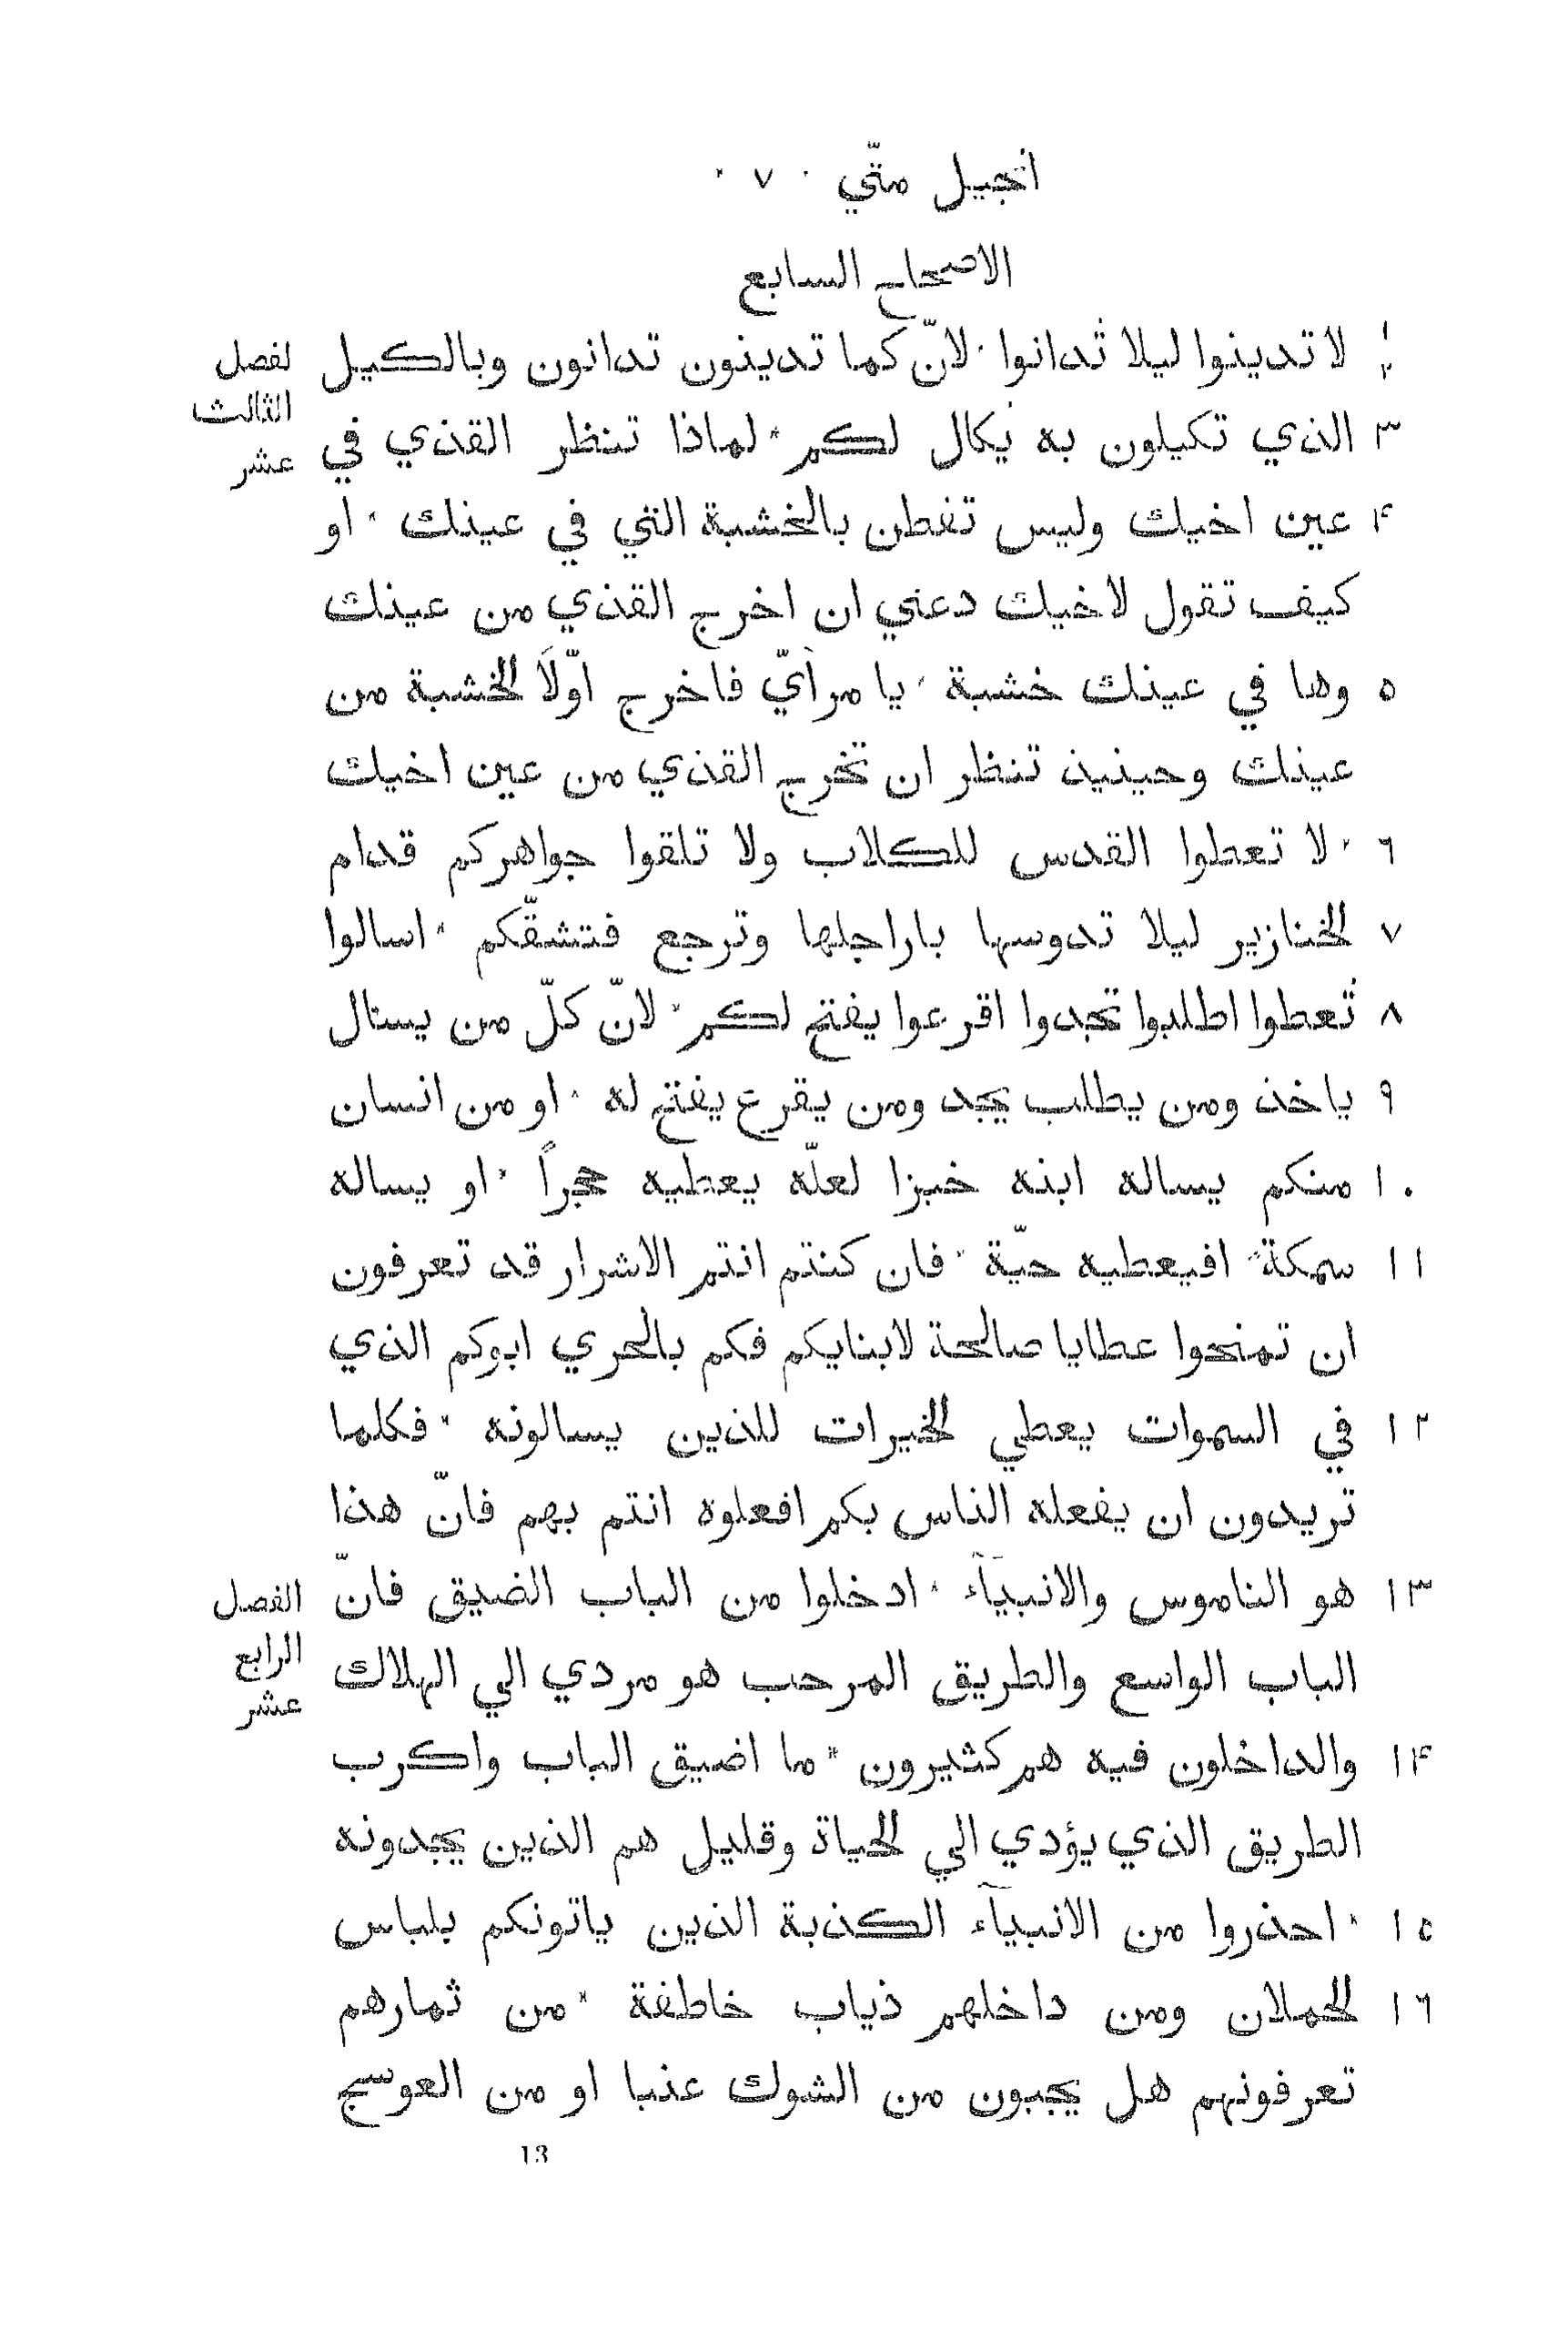 انجيل متّي ٠ ٧ ٠
الاصحاح السابع
١ ٢ لا تدينوا ليلا تُدانوا٠ لانّ كما تدينون تدانون وبالكيل
لفصل الثالث عشر
٣ الذي تكيلون به يُكال لكم * لماذا تنظر القذي في
۴ عين اخيك وليس تفطن بالخشبة التي في عينك ٠ او
كيف تقول لاخيك دعني ان اخرج القذي من عينك
٥ وها في عينك خشبة ٠ يا مرأيّ فاخرج اوّلاً الخشبة من
عينك وحينيذ تنظر ان تخرج القذي من عين اخيك
٦ ٠ لا تعطوا القدس للكلاب ولا تلقوا جواهركم قدام
٧ الخنازير ليلا تدوسها باراجلها وترجع فتشقّكم ٠ اسالوا
٨ تُعطوا اطلبوا تجدوا اقرعوا يفتح لكم * لانّ كلّ من يسال
٩ ياخذ ومن يطلب يجد ومن يقرع يفتح له ٠ او من انسان
١٠ منكم يساله ابنه خبزا لعلّه يعطيه حجراً * او يساله
١١ سمكة افيعطيه حيّة ٠ فان كنتم انتم الاشرار قد تعرفون
ان تمنحوا عطايا صالحة لابنايكم فكم بالحري ابوكم الذي
١٢ في السموات يعطي الخيرات للذين يسالونه * فكلما
تريدون ان يفعله الناس بكم افعلوه انتم بهم فانّ هذا
١٣ هو الناموس والانبيآء ٠ ادخلوا من الباب الضيق فانّ
الفصل الرابع عشر
الباب الواسع والطريق المرحب هو مردي الي الهلاك
١۴ والداخلون فيه هم كثيرون * ما اضيق الباب واكرب
الطريق الذي يؤدي الي الحياة وقليل هم الذين يجدونه
١٥ ٠ احذروا من الانبيآء الكذبة الذين ياتونكم بلباس
١٦ الحملان ومن داخلهم ذياب خاطفة * من ثمارهم
تعرفونهم هل يجبون من الشوك عنبا او من العوسج
13